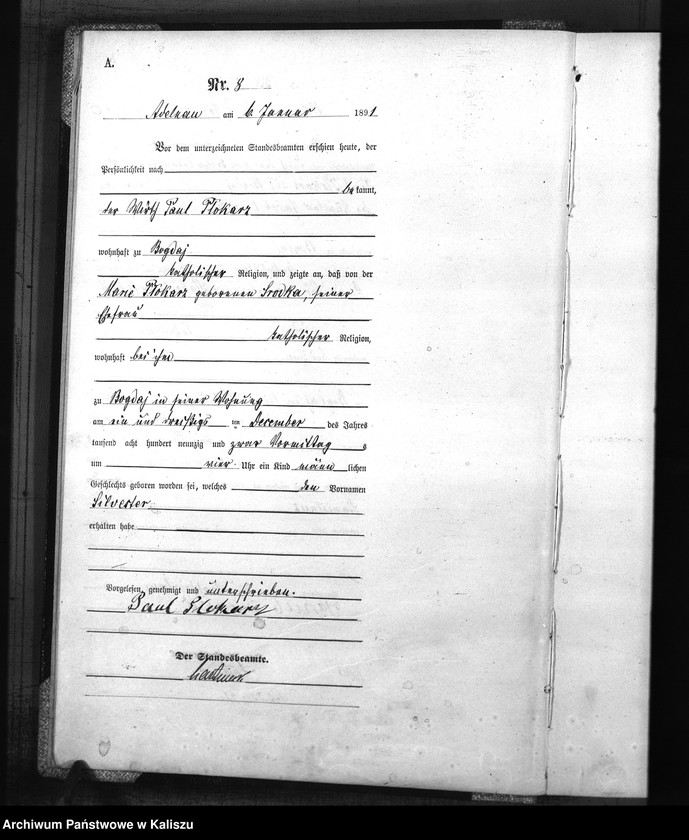 A.
Nr. 8
Adelnau am 6 Januar 1891
Vor dem unterzeichneten Standesbeamten erschien heute, der
Persönlichkeit nach
bekannt,
der Wirth Paul Tlokarz
wohnhaft zu Bogdaj
katholischer Religion, und zeigte an, daß von der
Marie Tlokarz geborenen Srodka, seiner
Ehefrau
katholischer Religion,
wohnhaft bei ihm
zu Bogdaj in seiner Wohnung
am ein und dreißigs ten December des Jahres
tausend acht hundert neunzig und zwar Vormittag s
um vier Uhr ein Kind männ lichen
Geschlechts geboren worden sei, welches den Vornamen
Silvester
erhalten habe
Vorgelesen, genehmigt und unterschrieben.
Paul Tlokarz
Der Standesbeamte.
Archiwum Państwowe w Kaliszu